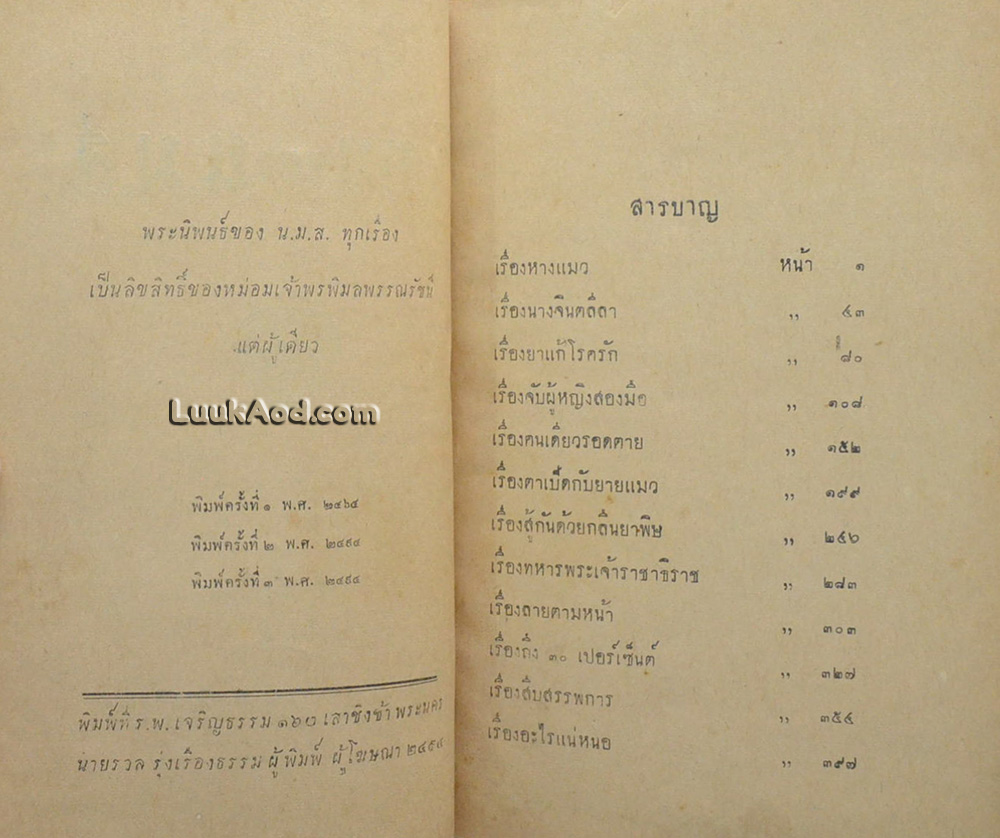 พระนิพนธ์ของ น.ม.ส. ทุกเรื่อง
เป็นลิขสิทธิ์ของหม่อมเจ้าพรพิมลพรรณรัชนี
แต่ผู้เดียว
LuukAod.com
พิมพ์ครั้งที่ ๑ พ.ศ. ๒๔๖๔
พิมพ์ครั้งที่ ๒ พ.ศ. ๒๔๙๔
พิมพ์ครั้งที่ ๓ พ.ศ. ๒๔๙๔
พิมพ์ที่ ร.พ. เจริญธรรม เสาชิงช้า พระนคร
นายรวล รุ่งเรืองธรรม ผู้พิมพ์ ผู้โฆษณา ๒๔๙๔
สารบาญ
เรื่องหางแมว หน้า ๑
เรื่องนางจินตลีลา ,, ๔๓
เรื่องยาแก้โรครัก ,, ๘๐
เรื่องจับผู้หญิงสองมือ ,, ๑๐๘
เรื่องคนเดียวรอดตาย ,, ๑๕๒
เรื่องตาเบี้ดกับยายแมว ,, ๑๙๙
เรื่องสู้กันด้วยกลิ่นยาพิษ ,, ๒๔๖
เรื่องทหารพระเจ้าราชาธิราช ,, ๒๘๓
เรื่องลายตามหน้า ,, ๓๐๓
เรื่องถึง ๓๐ เปอร์เซ็นต์ ,, ๓๒๗
เรื่องสืบสรรพการ ,, ๓๕๔
เรื่องอะไรแน่หนอ ,, ๓๙๗